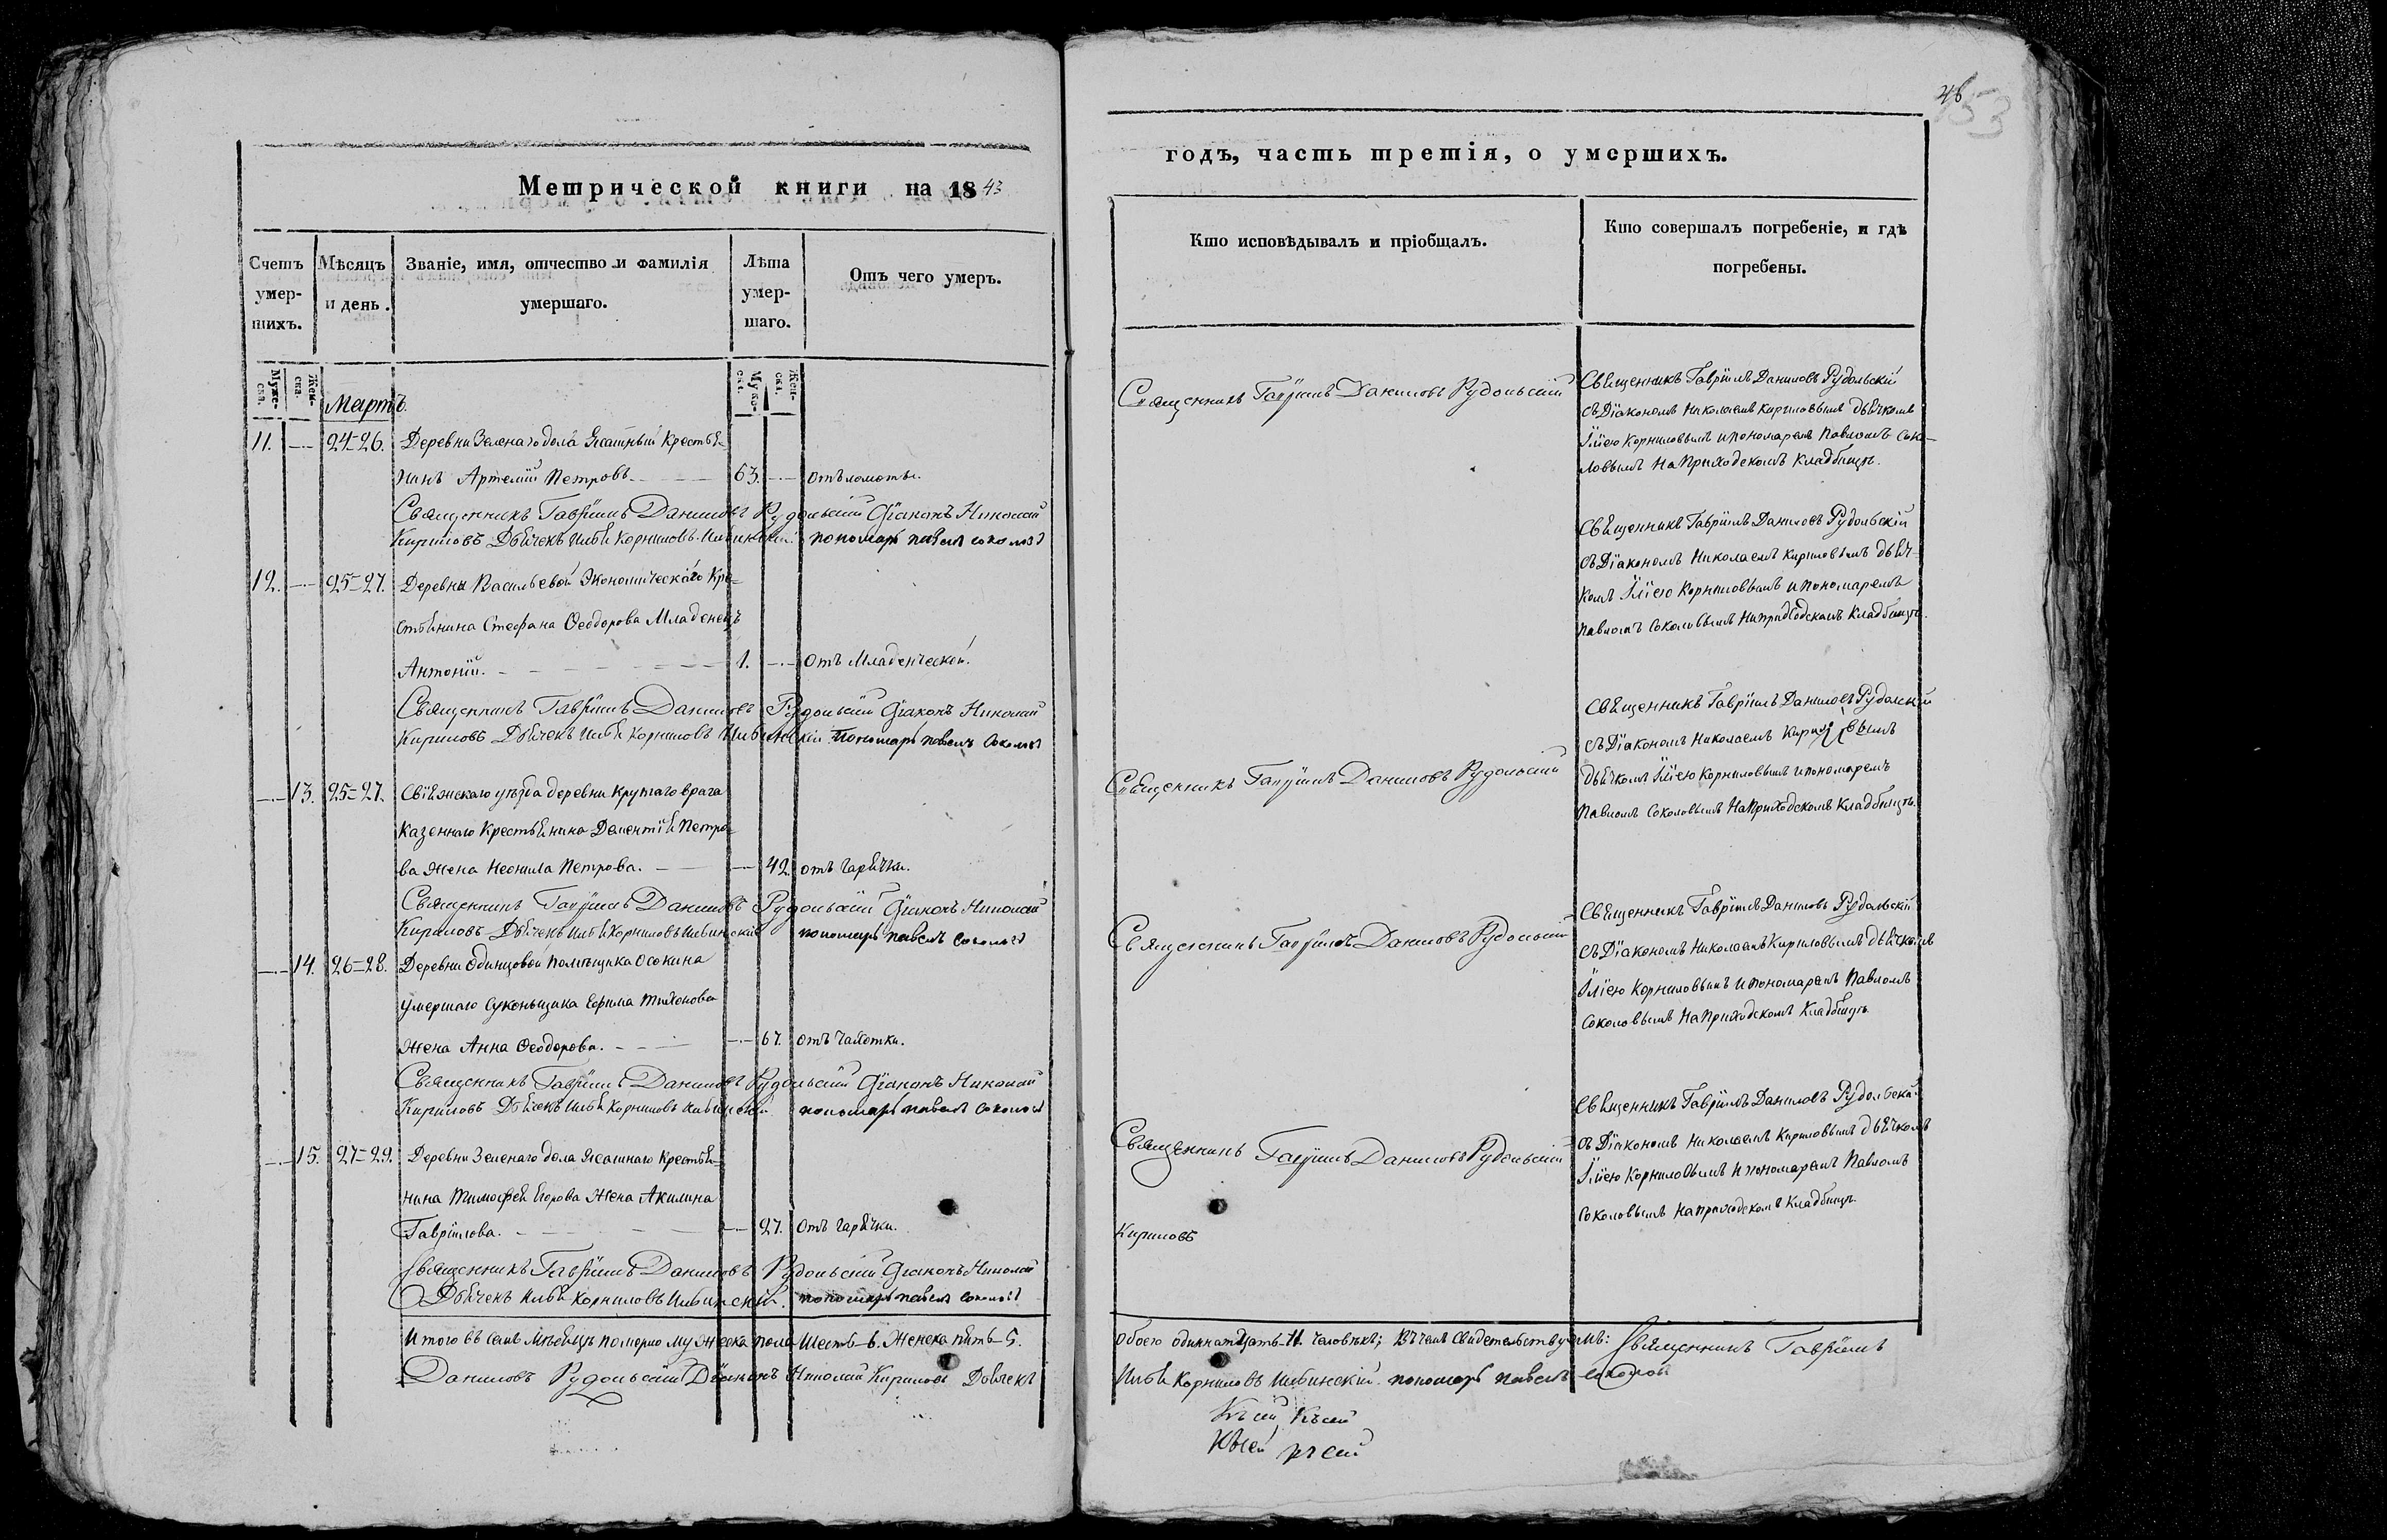 Метрической книги на 1843
Счетъ умер-шихъ.
Мѣсяцъ и день.
Званіе, имя, отчество и фамилія умершаго.
Лѣта умер-шаго.
Отъ чего умеръ.
Муже-ска.
Жен-ска.
Муже-ска.
Жен-ска.
Мартъ.
11. 24-26. Деревни Зеленаго дола Ясашный Крестья-
нинъ Артемій Петровъ. 63. отъ ломоты.
Священникъ Гавріилъ Даниловъ Рудольскій Діаконъ Николай
Кириловъ Дьячекъ Илья Корниловъ Ильинскій. пономарь павелъ соколов
12. 25-27. Деревни Васильевой Экономическаго Кре-
стьянина Стефана Ѳеодорова Младенецъ
Антоній. 1. Отъ Младенческой.
Священникъ Гавріилъ Даниловъ Рудольскій Діаконъ Николай
Кириловъ Дьячекъ Илья Корниловъ Ильинскій. Пономарь павелъ Соколов
13. 25-27. Свіяжскаго уѣзда деревни Круглаго врага
Казеннаго Крестьянина Дементія Петро-
ва Жена Неонила Петрова. 42. отъ Гарячки.
Священникъ Гавріилъ Даниловъ Рудольскій Діаконъ Николай
Кириловъ Дьячекъ Илья Корниловъ Ильинскій пономарь павелъ Соколов
14. 26-28. Деревни Одинцовой Помѣщика Осокина
умершаго Суконьщика Ефима Тихонова
Жена Анна Ѳеодорова. 67. отъ Чахотки.
Священникъ Гавріилъ Даниловъ Рудольскій Діаконъ Николай
Кириловъ Дьячекъ Илья Корниловъ Ильинскій пономарь павелъ Соколов
15. 27-29. Деревни Зеленаго дола Ясашнаго Крестья-
нина Тимофея Егорова Жена Акилина
Гавріилова. 27. Отъ Гарячки.
Священникъ Гавріилъ Даниловъ Рудольскій Діаконъ Николай
Дьячекъ Илья Корниловъ Ильинскій. пономарь павелъ Соколов
Итого въ семъ Мѣсяцѣ померло Мужеска пола Шесть-6. Женска пять-5.
Даниловъ Рудольскій Діаконъ Николай Кириловъ Дьячекъ
46
53
годъ, часть третія, о умершихъ.
Кто исповѣдывалъ и пріобщалъ.
Кто совершалъ погребеніе, и гдѣ погребены.
Священникъ Гавріилъ Даниловъ Рудольскій
Священникъ Гавріилъ Даниловъ Рудольскій
съ Діакономъ Николаемъ Кириловымъ дьячкомъ
Іліею Корниловымъ и пономаремъ Павломъ Соко-
ловымъ На Приходскомъ Кладбищѣ.
Священникъ Гавріилъ Даниловъ Рудольскій
съ Діакономъ Николаемъ Кириловымъ дьяч-
комъ Іліею Корниловымъ и пономаремъ
Павломъ Соколовымъ На приходскомъ Кладбищѣ.
Священникъ Гавріилъ Даниловъ Рудольскій
Священникъ Гавріилъ Даниловъ Рудольскій
съ Діакономъ Николаемъ Кириловымъ
дьячкомъ Іліею Корниловымъ и пономаремъ
Павломъ Соколовымъ На Приходскомъ Кладбищѣ.
Священникъ Гавріилъ Даниловъ Рудольскій
Священникъ Гавріилъ Даниловъ Рудольскій
съ Діакономъ Николаемъ Кириловымъ дьячкомъ
Іліею Корниловымъ и пономаремъ Павломъ
Соколовымъ На Приходскомъ Кладбищѣ.
Священникъ Гавріилъ Даниловъ Рудольскій
Кириловъ
Священникъ Гавріилъ Даниловъ Рудольскій
съ Діакономъ Николаемъ Кириловымъ дьячкомъ
Іліею Корниловымъ и пономаремъ Павломъ
Соколовымъ На приходскомъ Кладбищѣ.
Обоего одиннатцать-11. Человѣкъ; Въ чемъ Свидетельствуемъ: Священникъ Гавріилъ
Илья Корниловъ Ильинскій. пономарь павелъ соколов